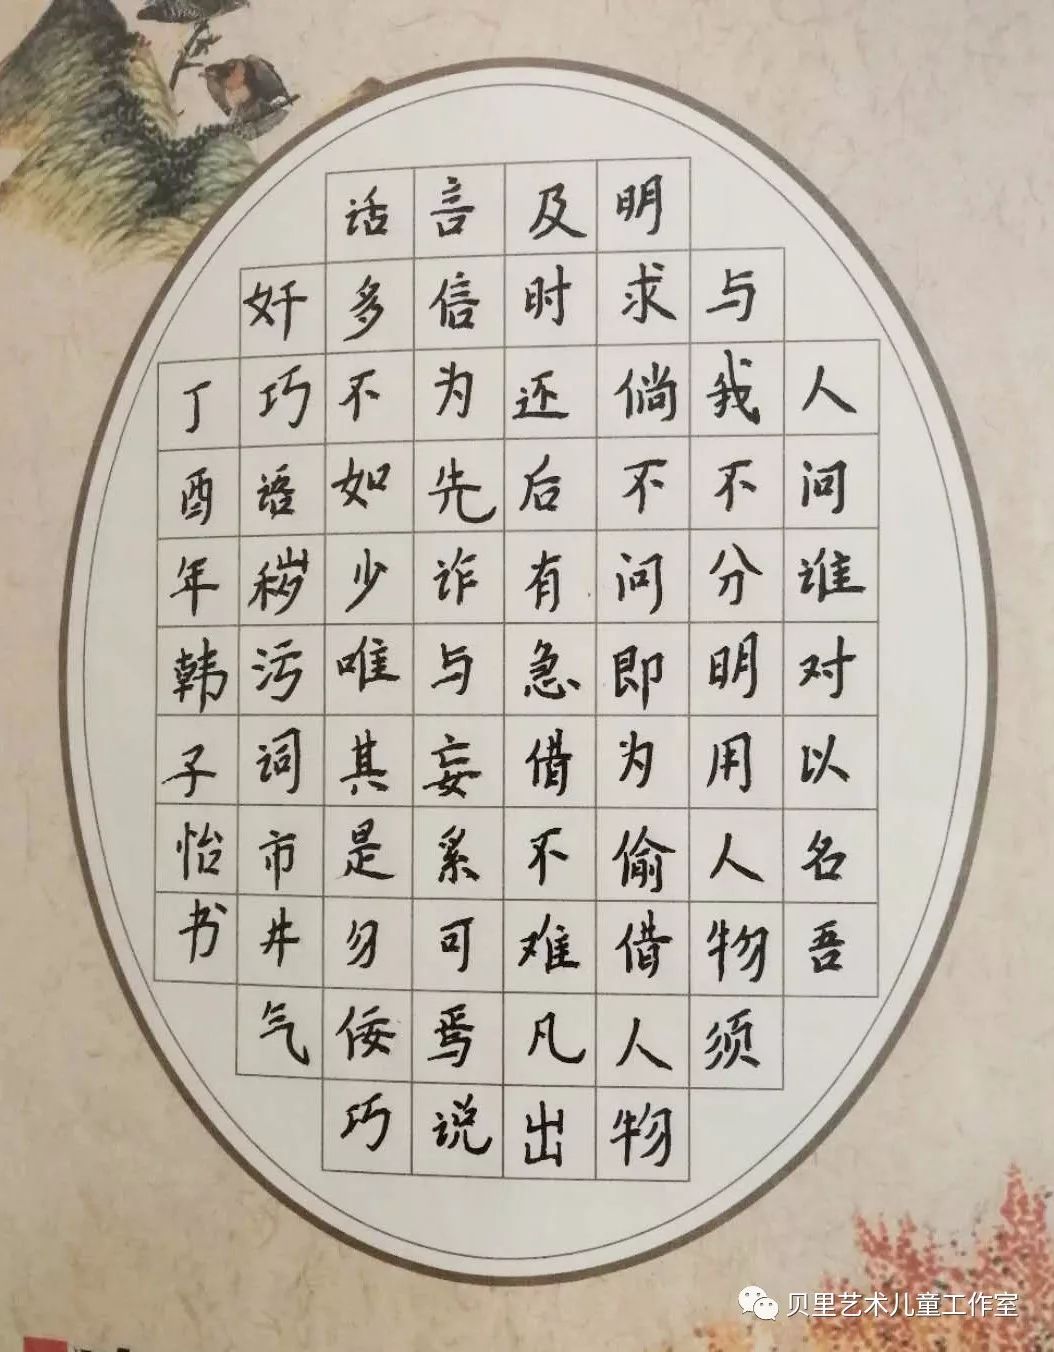 人问谁对以名吾
与我不分明用人物须
明求倘不问即为偷借人物
及时还后有急借不难凡出
言信为先诈与妄奚可焉说
话多不如少唯其是勿佞巧
奸巧语秽污词市井气
丁酉年韩子怡书
贝里艺术儿童工作室